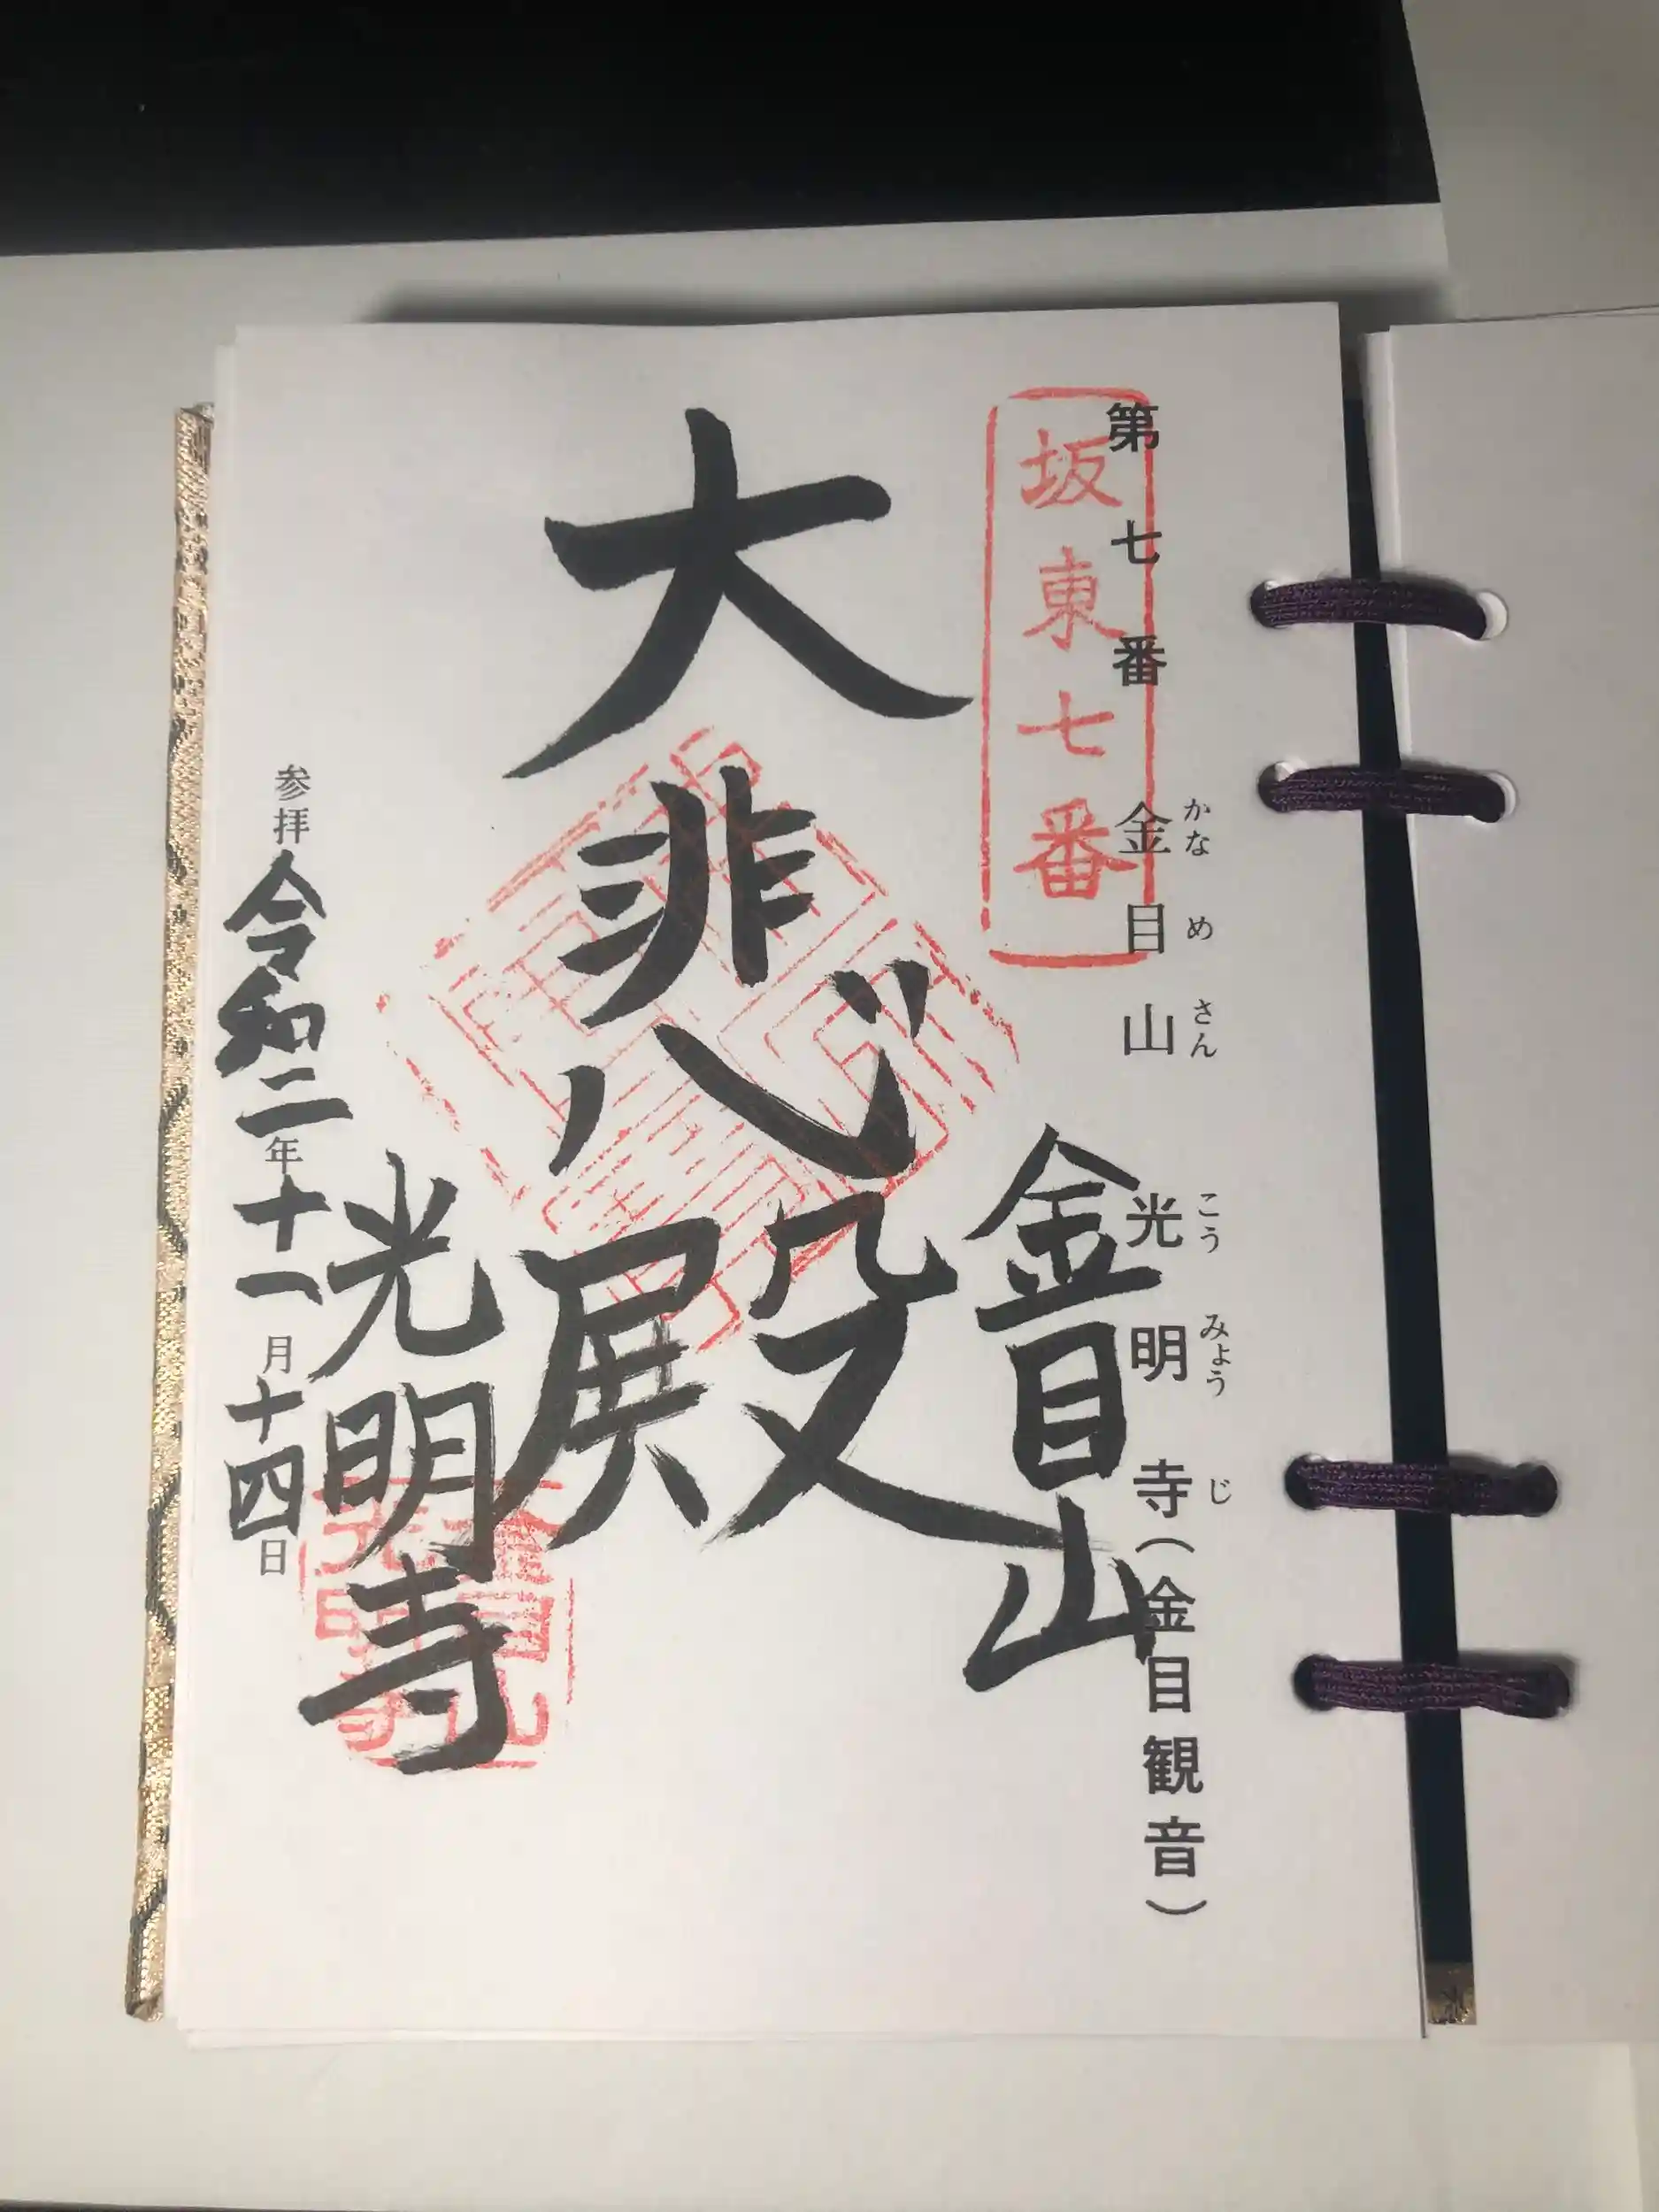 第七番 金目山 光明寺(金目観音)
かなめさん こうみょうじ
坂東七番
金目山
大悲殿
光明寺
参拝 令和二年十一月十四日
金目山
光明寺